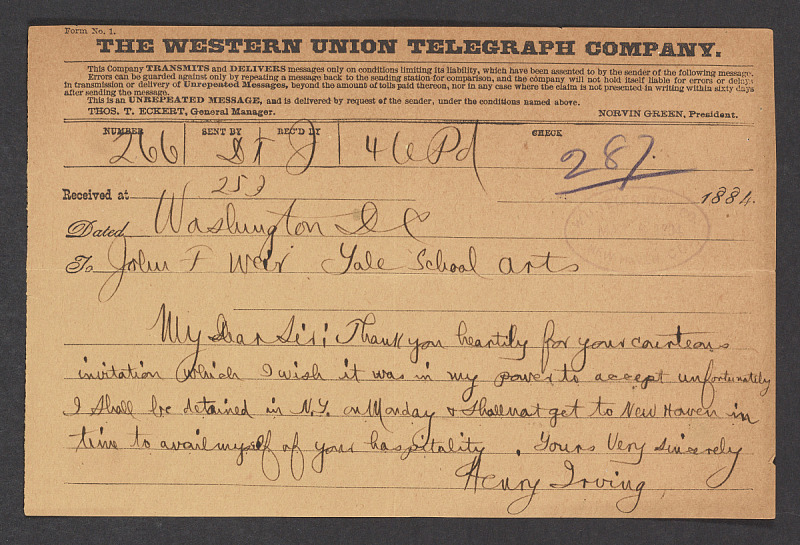 Form No. 1.
THE WESTERN UNION TELEGRAPH COMPANY.
This Company TRANSMITS and DELIVERS messages only on conditions limiting its liability, which have been assented to by the sender of the following message.
Errors can be guarded against only by repeating a message back to the sending station for comparison, and the company will not hold itself liable for errors or delays
in transmission or delivery of Unrepeated Messages, beyond the amount of tolls paid thereon, nor in any case where the claim is not presented in writing within sixty days
after sending the message.
This is an UNREPEATED MESSAGE, and is delivered by request of the sender, under the conditions named above.
THOS. T. ECKERT, General Manager. NORVIN GREEN, President.
NUMBER SENT BY REC'D BY CHECK
266 Dt J 46 Pd 287.
253
Received at 1884.
Dated Washington D C
To John F Weir Yale School Arts
My Dear Sir; Thank you heartily for your courteous
invitation which I wish it was in my power to accept unfortunately
I shall be detained in N.Y. on Monday & shall not get to New Haven in
time to avail myself of your hospitality. Yours Very Sincerely
Henry Irving